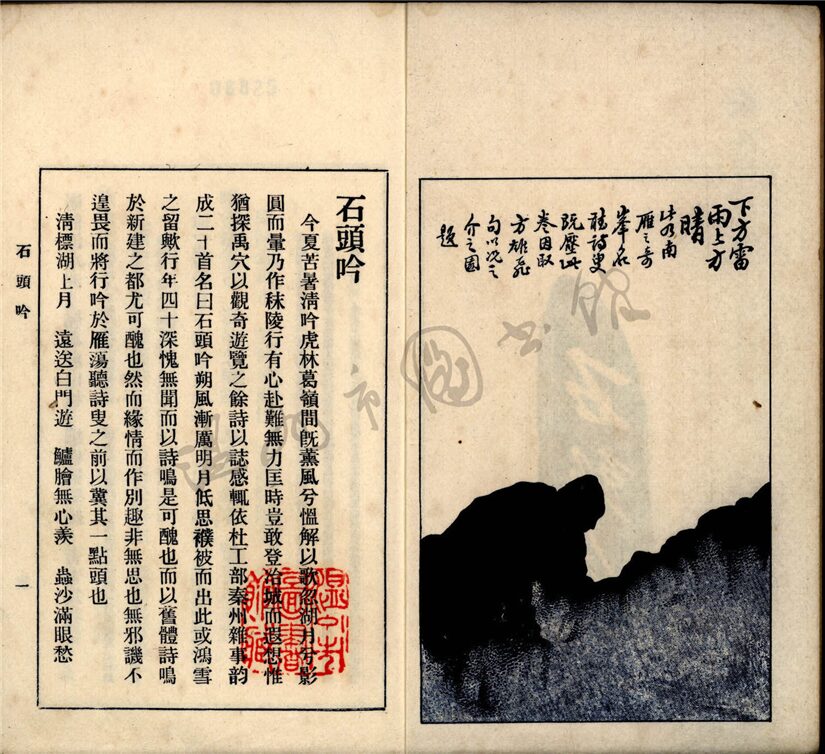 下方雷
雨上方
晴
此為南
雁之奇
峯名
聽詩叟
既歷此
卷因取
方雄飛
句以况之
介之圖
題
石頭吟
今夏苦暑淸吟虎林葛嶺間旣薰風兮慍解以歌忽湖月兮影
圓而暈乃作秣陵行有心赴難無力匡時豈敢登冶城而遐想惟
猶探禹穴以觀奇遊覽之餘詩以誌感輒依杜工部秦州雜事韵
成二十首名曰石頭吟朔風漸厲明月低思襆被而出此或鴻雪
之留歟行年四十深愧無聞而以詩鳴是可醜也而以舊體詩鳴
於新建之都尤可醜也然而緣情而作別趣非無思也無邪譏不
遑畏而將行吟於雁蕩聽詩叟之前以冀其一點頭也
淸標湖上月　遠送白門遊　鱸膾無心羨　蟲沙滿眼愁
石頭吟
一
溫州市圖書館